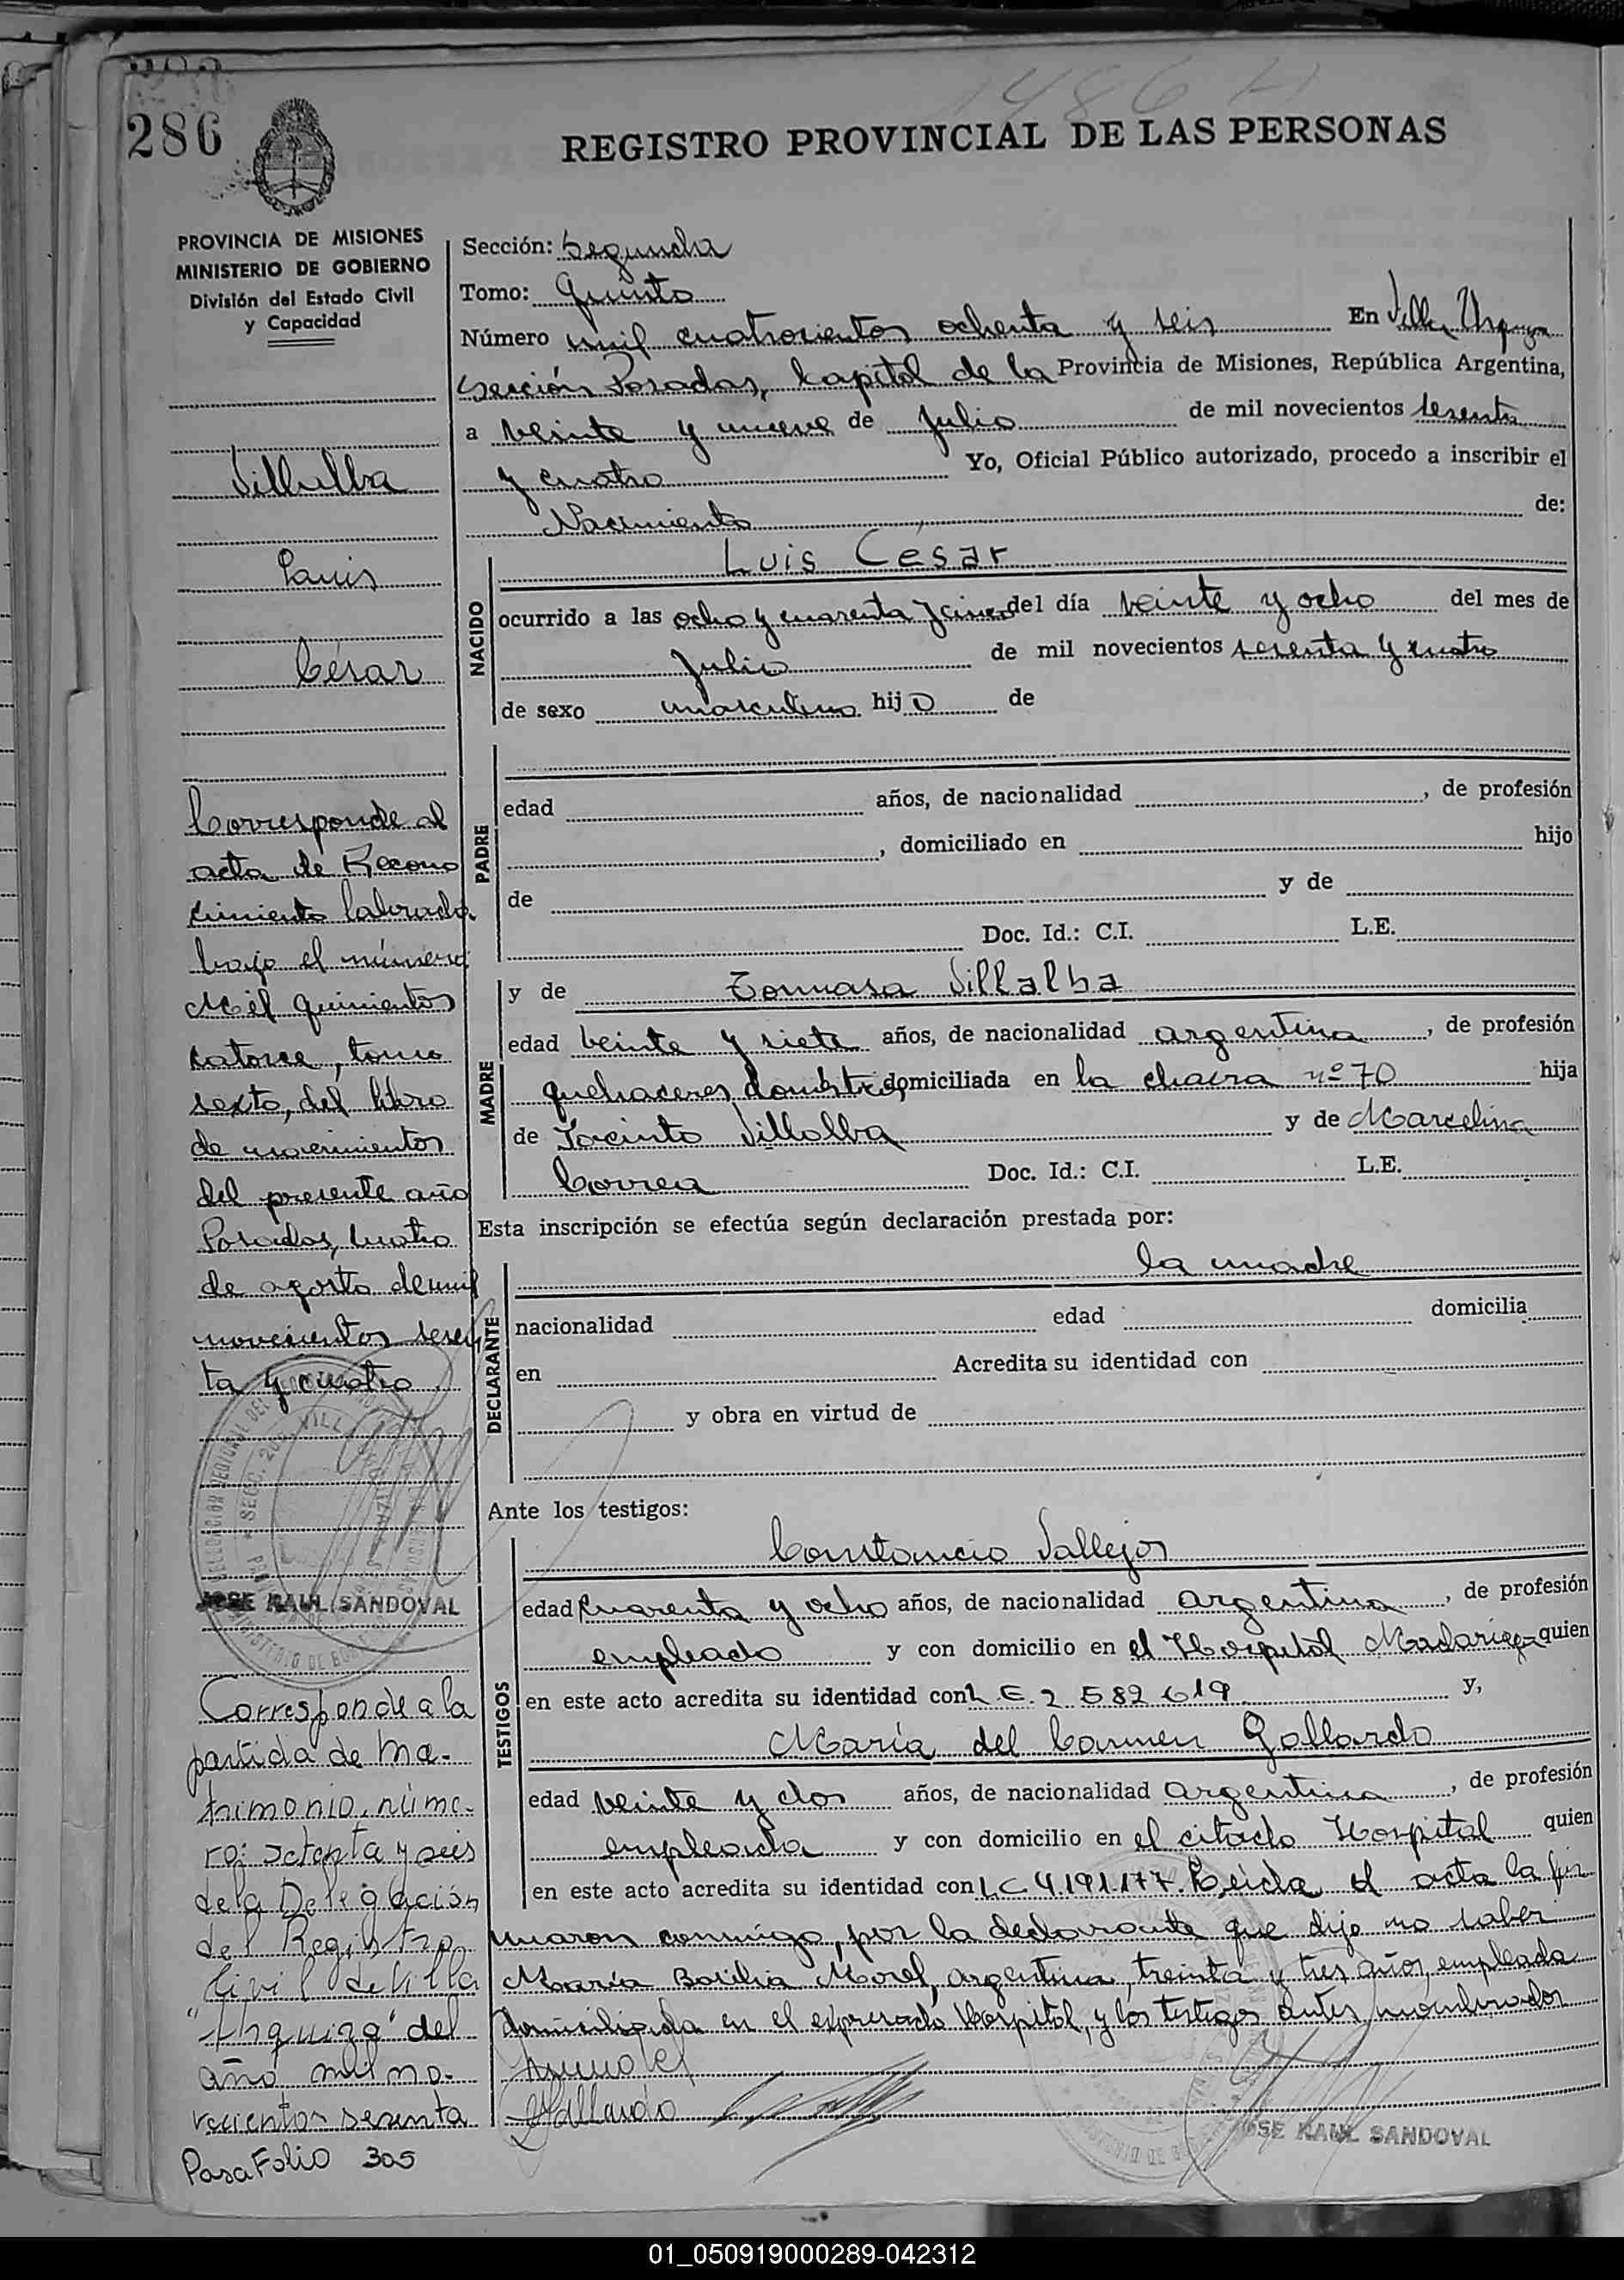 286
1486
REGISTRO PROVINCIAL DE LAS PERSONAS
PROVINCIA DE MISIONES
MINISTERIO DE GOBIERNO
División del Estado Civil
y Capacidad
Villalba
Luis
César
Corresponde al
acta de Recono
cimiento labrada
bajo el número
Mil quinientos
catorce, tomo
sexto, del libro
de nacimientos
del presente año
Posadas, cuatro
de agosto de mil
novecientos sesen
ta y cuatro
JOSE RAUL SANDOVAL
Corresponde a la
partida de ma-
trimonio, núme-
ro: setenta y seis
de la Delegación
del Registro
Civil de Villa
"Urquiza" del
año mil no-
vecientos sesenta
Pasa Folio 305
Sección: Segunda
Tomo: Quinto
Número mil cuatrocientos ochenta y seis En Villa Urquiza
Sección Posadas, Capital de la Provincia de Misiones, República Argentina,
a veinte y nueve de Julio de mil novecientos sesenta
y cuatro Yo, Oficial Público autorizado, procedo a inscribir el
Nacimiento de:
NACIDO
Luis César
ocurrido a las ocho y cuarenta y cinco del día veinte y ocho del mes de
Julio de mil novecientos sesenta y cuatro
de sexo masculino hijo de
PADRE
edad años, de nacionalidad , de profesión
, domiciliado en hijo
de y de
Doc. Id.: C.I. L.E.
MADRE
y de Tomasa Villalba
edad veinte y siete años, de nacionalidad argentina, de profesión
quehaceres domésticos, domiciliada en la chacra nº 70 hija
de Jacinto Villalba y de Marcelina
Correa Doc. Id.: C.I. L.E.
Esta inscripción se efectúa según declaración prestada por:
DECLARANTE
la madre
nacionalidad edad domicilia
en Acredita su identidad con
y obra en virtud de
Ante los testigos:
TESTIGOS
Constancio Vallejos
edad cuarenta y ocho años, de nacionalidad argentina, de profesión
empleado y con domicilio en el Hospital Madariaga quien
en este acto acredita su identidad con L.E. 2.582.619 y,
María del Carmen Gallardo
edad veinte y dos años, de nacionalidad argentina, de profesión
empleada y con domicilio en el citado Hospital quien
en este acto acredita su identidad con L C 4.191.177. Leída el acta la fir
maron conmigo, por la declarante que dijo no saber
María Basilia Morel, argentina, treinta y tres años, empleada
domiciliada en el expresado Hospital, y los testigos antes nombrados
Gallardo
JOSE RAUL SANDOVAL
01_050919000289-042312